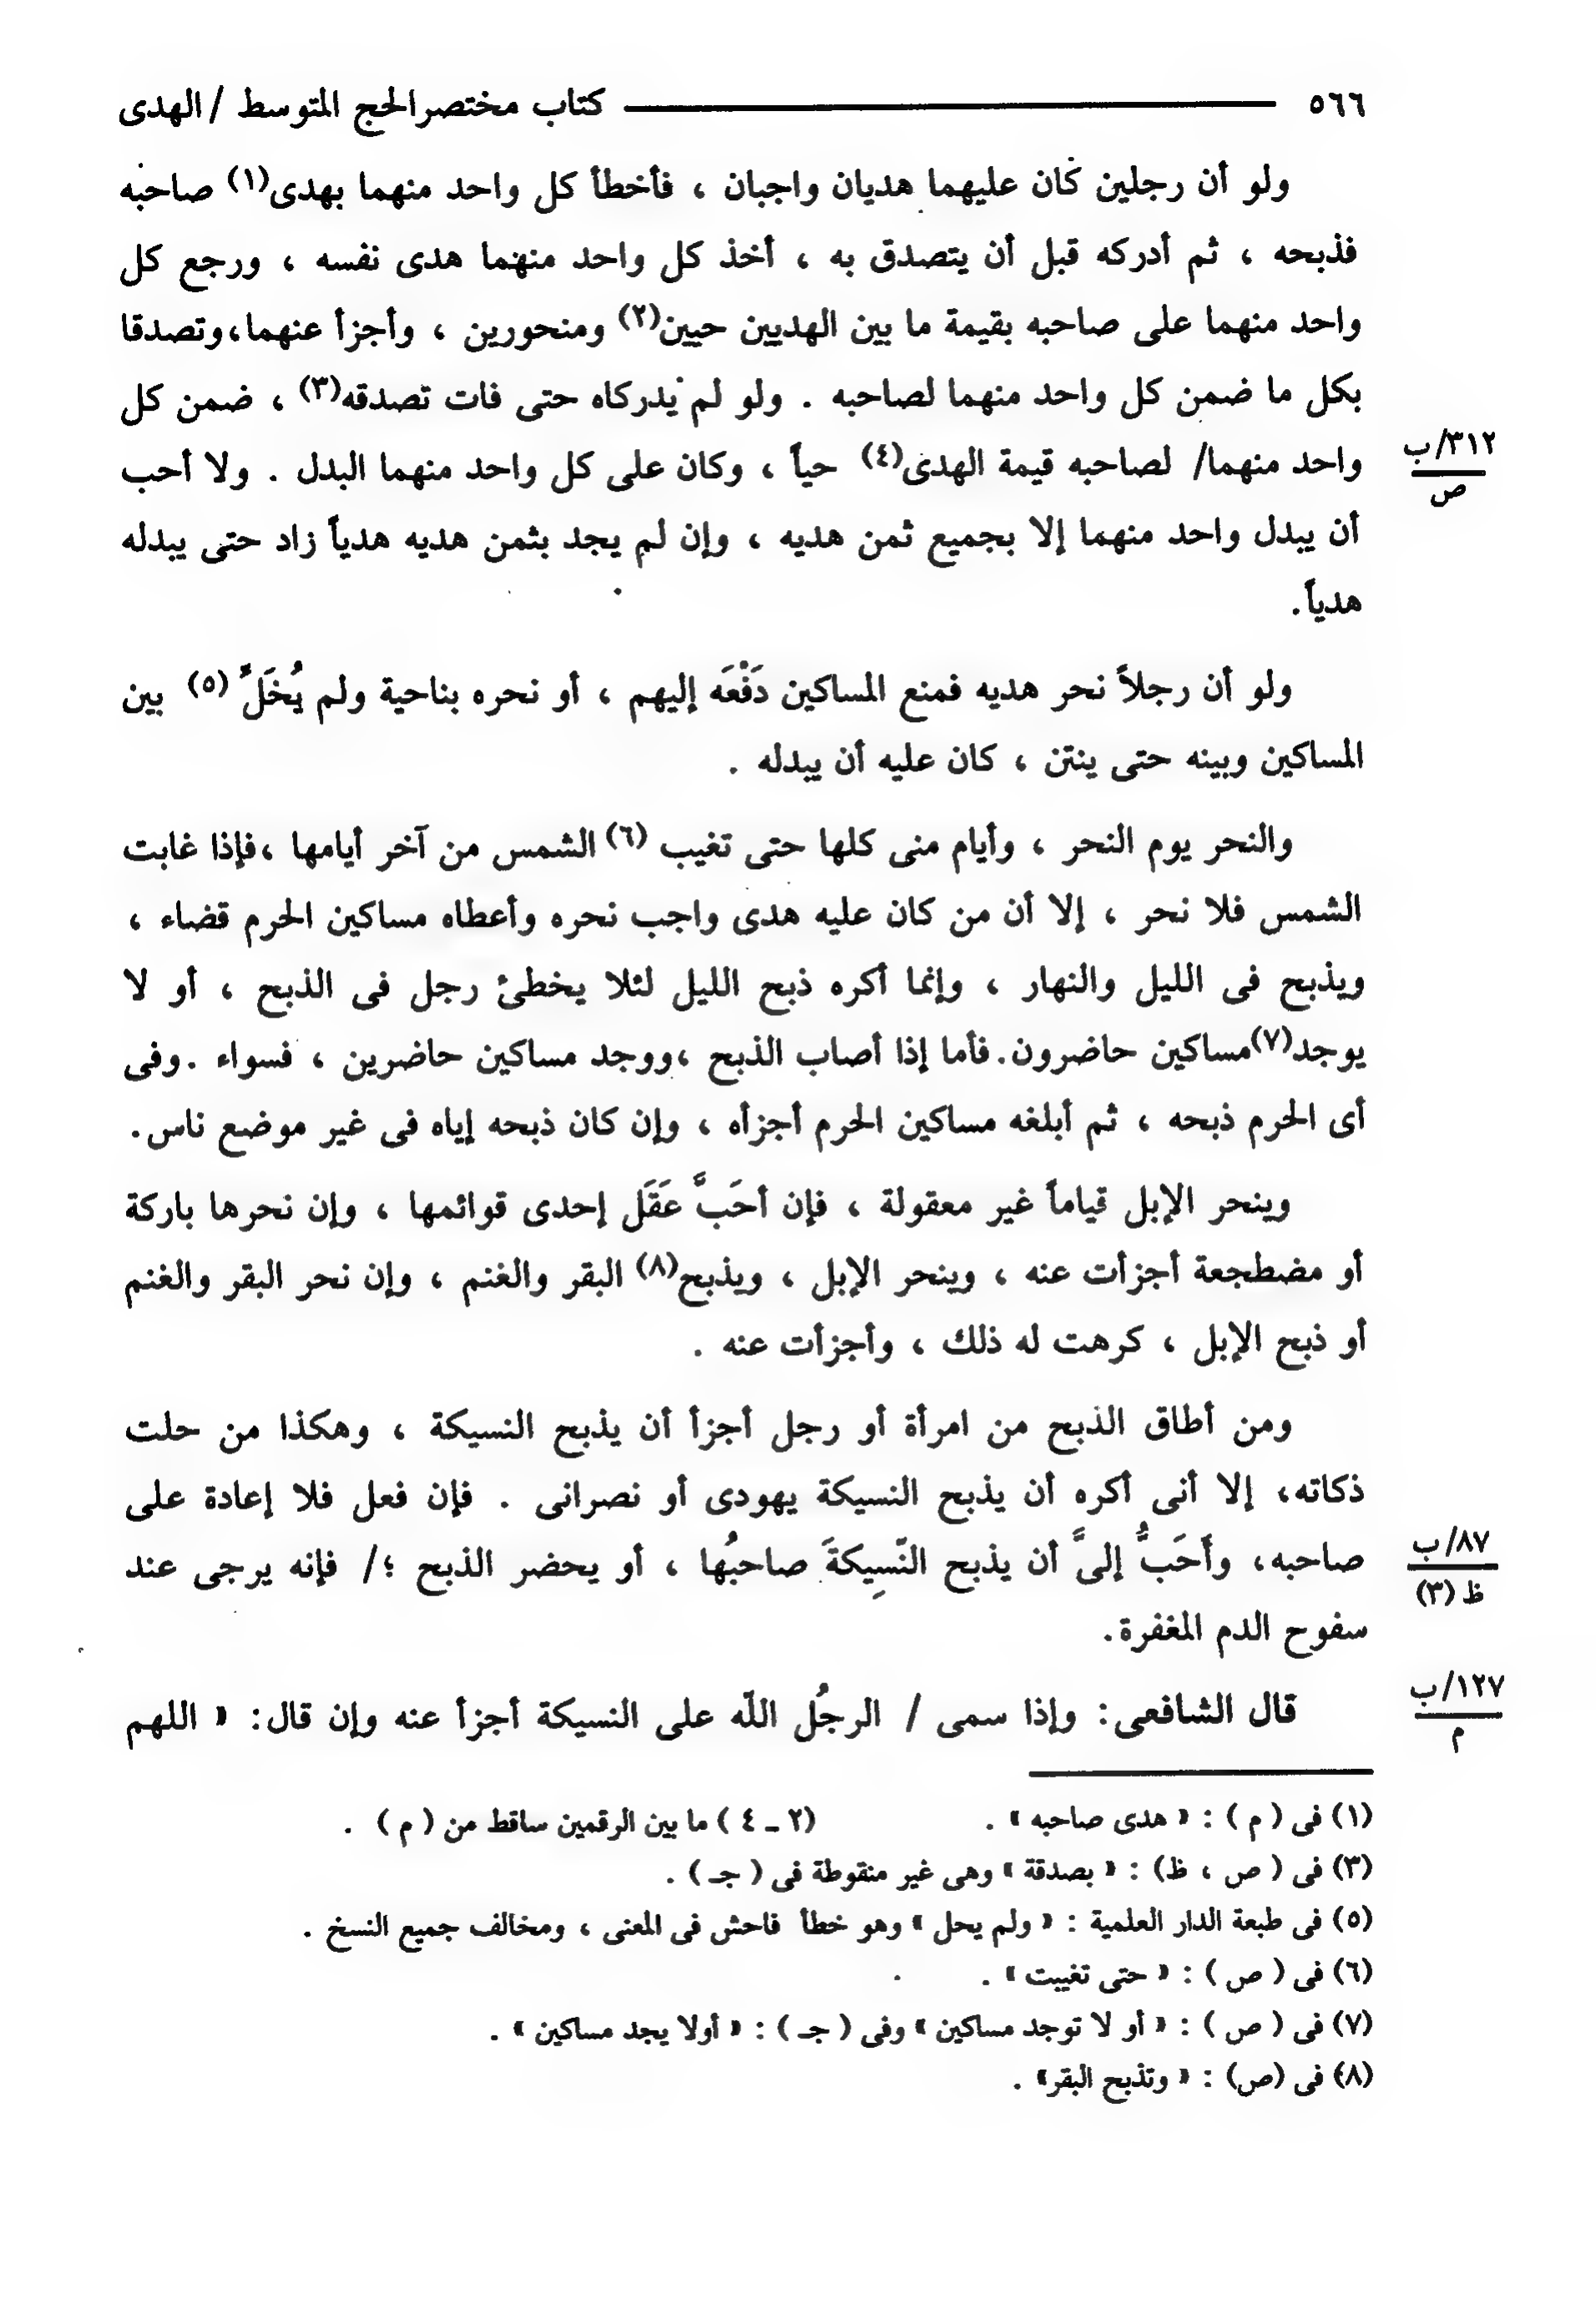 ٥٦٦ كتاب مختصر الحج المتوسط / الهدى
ولو أن رجلين كان عليهما هديان واجبان ، فأخطأ كل واحد منهما بهدى(١) صاحبه
فذبحه ، ثم أدركه قبل أن يتصدق به ، أخذ كل واحد منهما هدى نفسه ، ورجع كل
واحد منهما على صاحبه بقيمة ما بين الهديين حيين(٢) ومنحورين ، وأجزأ عنهما،وتصدقا
بكل ما ضمن كل واحد منهما لصاحبه . ولو لم يدركاه حتى فات تصدقه(٣) ، ضمن كل
واحد منهما/ لصاحبه قيمة الهدى(٤) حياً ، وكان على كل واحد منهما البدل . ولا أحب
٣١٢/ب
ص
أن يبدل واحد منهما إلا بجميع ثمن هديه ، وإن لم يجد بثمن هديه هدياً زاد حتى يبدله
هدياً.
ولو أن رجلاً نحر هديه فمنع المساكين دَفْعَه إليهم ، أو نحره بناحية ولم يُخَلِّ (٥) بين
المساكين وبينه حتى ينتن ، كان عليه أن يبدله .
والنحر يوم النحر ، وأيام منى كلها حتى تغيب (٦) الشمس من آخر أيامها ،فإذا غابت
الشمس فلا نحر ، إلا أن من كان عليه هدى واجب نحره وأعطاه مساكين الحرم قضاء ،
ويذبح فى الليل والنهار ، وإنما أكره ذبح الليل لئلا يخطئ رجل فى الذبح ، أو لا
يوجد(٧)مساكين حاضرون.فأما إذا أصاب الذبح ،ووجد مساكين حاضرين ، فسواء .وفى
أى الحرم ذبحه ، ثم أبلغه مساكين الحرم أجزأه ، وإن كان ذبحه إياه فى غير موضع ناس.
وينحر الإبل قياماً غير معقولة ، فإن أحَبَّ عَقَل إحدى قوائمها ، وإن نحرها باركة
أو مضطجعة أجزأت عنه ، وينحر الإبل ، ويذبح(٨) البقر والغنم ، وإن نحر البقر والغنم
أو ذبح الإبل ، كرهت له ذلك ، وأجزأت عنه .
ومن أطاق الذبح من امرأة أو رجل أجزأ أن يذبح النسيكة ، وهكذا من حلت
ذكاته، إلا أنى أكره أن يذبح النسيكة يهودى أو نصرانى . فإن فعل فلا إعادة على
صاحبه، وأَحَبُّ إلىَّ أن يذبح النّسِيكَةَ صاحبُها ، أو يحضر الذبح ؛/ فإنه يرجى عند
٨٧/ب
ظ (٣)
سفوح الدم المغفرة.
قال الشافعى: وإذا سمى / الرجُل اللّه على النسيكة أجزأ عنه وإن قال: « اللهم
١٢٧/ب
م
(١) فى ( م ) : « هدى صاحبه » . (٢ ـ ٤ ) ما بين الرقمين ساقط من ( م ) .
(٣) فى ( ص ، ظ) : « بصدقة » وهى غير منقوطة فى ( جـ ) .
(٥) فى طبعة الدار العلمية : « ولم يحل » وهو خطأ فاحش فى المعنى ، ومخالف جميع النسخ .
(٦) فى ( ص ) : « حتى تغييت » .
(٧) فى ( ص ) : « أو لا توجد مساكين » وفى ( جـ ) : « أولا يجد مساكين » .
(٨) فى (ص) : « وتذبح البقر» .